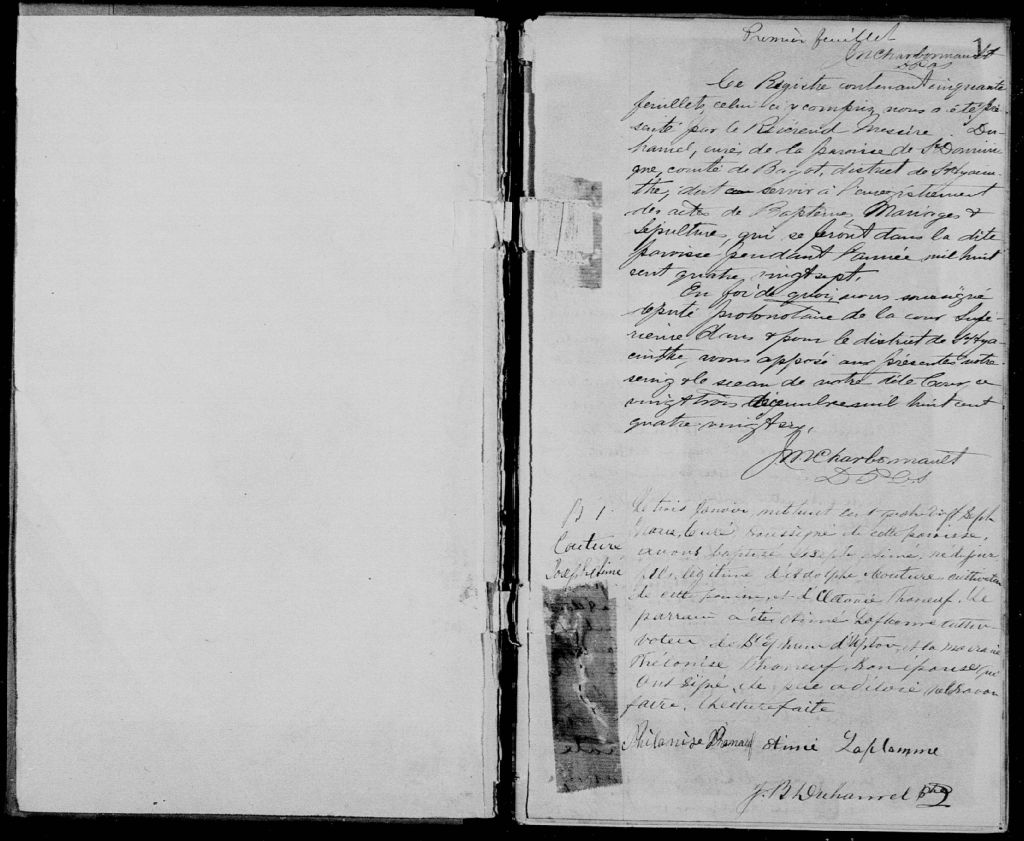 Premier feuillet
1
JNCharbonnault
DPCS
Ce Registre contenant cinquante
feuillets, celui ci y compris, nous a été pré
senté par le Révérend Messire Du-
hamel, curé de la paroisse de St Domini
que, comté de Bagot, district de St Hyacin-
the, doit servir à l'enregistrement
des actes de Baptèmes, Mariages &
Sépultures, qui se feront dans la dite
paroisse pendant l'année mil huit
cent quatre vingt sept.
En foi de quoi, nous soussigné
député protonotaire de la cour Supé-
rieure dans & pour le district de St Hya-
cinthe, avons apposé aux présentes notre
seing & le sceau de notre dite Cour, ce
vingt trois décembre mil huit cent
quatre vingt six.
JNCharbonnault
DPCS
B 1
Couture
Joseph Aimé
Le trois Janvier, mil huit cent quatre vingt sept
nous, Curé, soussigné de cette paroisse,
avons baptisé Joseph Aimé, né du jour
fils légitime d'Adolphe Couture cultivateur
de cette paroisse, et d'Phaneuf. Le
parrain a été Aimé Laflamme culti-
vateur de St Ephrem d'Upton, et la marraine
Phaneuf, son épouse, qui
ont signé, le père a déclaré ne savoir
faire, lecture faite
Phaneuf Aimé Laflamme
J. B. Duhamel Ptre